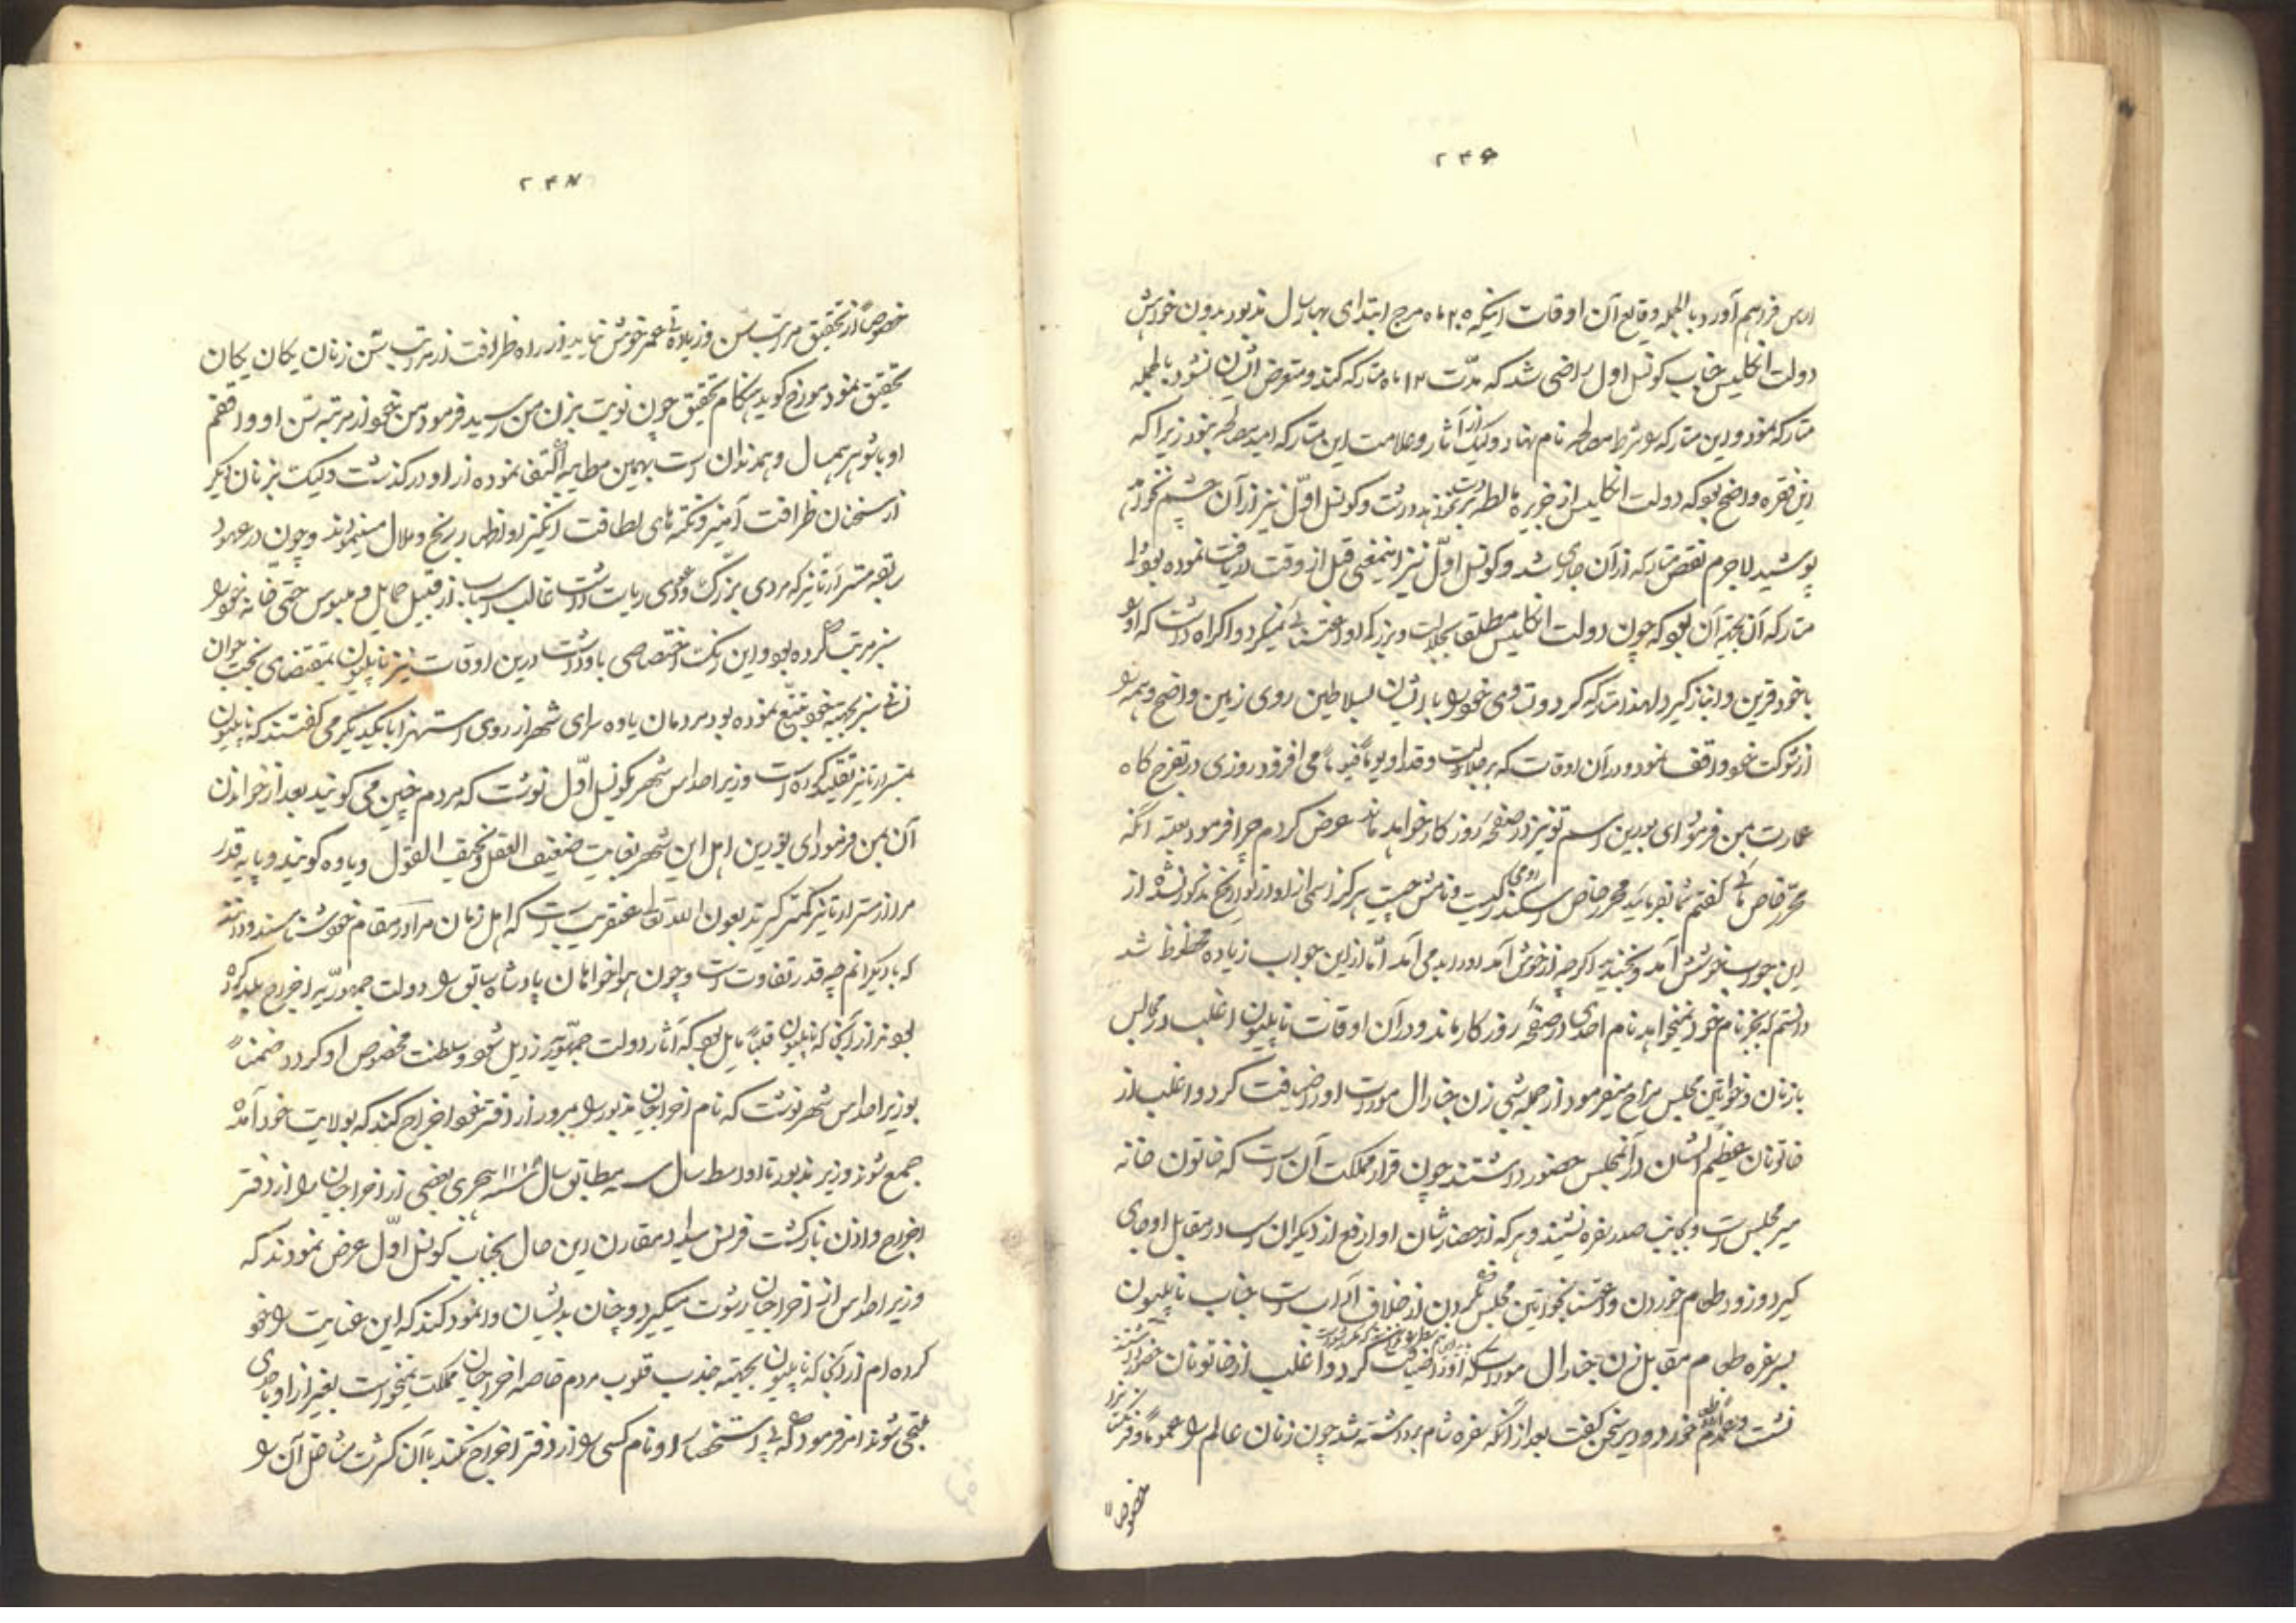 ۲۴۶
فراهم آورد بالجمله وقایع آن اوقات اینکه ۲۵ ماه مرچ ابتدای بهار سال مذبور بدون خواهش
دولت انکلیس جناب کونسل اول راضی شد که مدّت ۱۲ ماه متارکه کند و متعرض ایشان نشود بالجمله
متارکه نمود و این متارکه را شرط مصالحه نام نهاد و لیک از آثار و علامت این متارکه امید مصالحه نبود زیرا که
این فقره واضح بود که دولت انکلیس از جزیره مالطه دست بر نمیداشت و کونسل اوّل نیز از آن چشم نخواهد
پوشید لاجرم نقض متارکه از آن جاری شد و کونسل اوّل نیز اینمعنی قبل از وقت دریافت نموده بود
متارکه آن بجهته آن بود که چون دولت انکلیس مطلقا بجلالت و بزرکی او اعتنائی نمیکرد و اکراه داشت که او را
با خود قرین و انباز کیرد لهذا متارکه کرد و تساوی خود را با ایشان بسلاطین روی زمین واضح و همه را
از شوکت خود واقف نمود و در آن اوقات که بر جلالت و قدر او یوماً فیوماً می افزود روزی در تفرج کاه
عمارت بمن فرمود ای بورین اسم تو نیز در صفحه روزکار خواهد ماند عرض کردم چرا فرمود بعلت آنکه
محرّر خاص مائی کفتم شما بفرمائید محرر خاص اسکندر رومی کیست و نامش چیست هرکز اسمی از او در تواریخ مذکور نشده از
این جواب خوشش آمد و بخندید اکرچه از خوش آمد او را بد می آمد امّا از این جواب زیاده محظوظ شد
دانستم که بجز نام خود نمیخواهد نام احدی در صفحه روزکار ماند و در آن اوقات ناپلیون اغلب در مجالس
با زنان و خواتین مجلس مزاح میفرمود از جمله شبی زن جنارال مورات او را ضیافت کرد و اغلب از
خاتونان عظیم الشان در آنمجلس حضور داشتند چون قرار مملکت آن است که خاتون خانه
میر مجلس است و بجانب صدر سفره نشیند و هر که از حضار شان او ارفع از دیکران است در مقابل او جای
کیرد و زود طعام خوردن و اعتنا بخواتین مجلس نکردن از خلاف آداب است جناب ناپلیون
بر سفره طعام مقابل زن جنارال مورات که او را ضیافت کرد و اغلب از خاتونان حضور داشتند
نشست و طعام خورد و دیر سخن کفت بعد از آنکه سفره شام برداشته شد چون زنان عالم را عموماً و فرنک را
خصوصاً
۲۴۷
خصوصاً از تحقیق مراتب سن و زیادتی عمر خوش نیاید از راه ظرافت از مراتب سن زنان یکان یکان
تحقیق نمود مورخ کوید هنکام تحقیق چون نوبت بزن من رسید فرمود من بخود از مرتبه سن او واقفم
او با شوهر همسال و همزندان است بهمین مطایبه اکتفا نموده از او در کذشت و لیک بزنان دیکر
از سخنان ظرافت آمیز و نکته های لطافت انکیز او اظهار رنج و ملال مینمودند و چون در عهود
سابقه مستر ارتایز که مردی بزرک و دعوی ریاست داشت غالب اسباب از قبیل حمایل و ملبوس حتی خانه خود را
سبز مرتب کرده بود و این رنک اختصاصی باو داشت درین اوقات نیز ناپلیون بمقتضای بخت جوان
نشانی سبز بجهته خود وضع نموده بود مردمان یاوه سرای شهر از روی استهزا با یکدیکر می کفتند که ناپلیون
بمستر ارتایز تقلید کرده است وزیر احداس شهر بکونسل اوّل نوشت که مردم چنین می کویند بعد از خواندن
آن بمن فرمود ای بورین اهل این شهر بغایت ضعیف العقل و خفیف القول و یاوه کویند و پایه قدر
مرا از مستر ارتایز کمتر کیرند بعون الله تعالی عنقریب است که اهل زمان مرا در مقام خود شناسند و دانند
که با دیکرانم چه قدر تفاوت است و چون هواخواهان پادشاه سابق را دولت جمهوریّه اخراج بلد کرده
بود نیز از آنجا که ناپلیون قلباً مایل بود که آثار دولت جمهوریّه زایل شود و سلطنت مخصوص او کردد ضمناً
بوزیر احداس شهر نوشت که نام اخراجیان مذبور را بمرور از دفتر خود اخراج کند که بولایت خود آمده
جمع شوند وزیر مذبور تا اواسط سال مطابق سال هجری بعضی از اخراجیان را از دفتر
اخراج و اذن بازکشت فرنس داد مقارن این حال بجناب کونسل اوّل عرض نمودند که
وزیر احداس از اخراجیان رشوت میکیرد و چنان بدیشان وانمود کند که این عنایت را خود
کرده ام از آنجا که ناپلیون بجهته جذب قلوب مردم خاصه اخراجیان مملکت نمیخواست بغیر از او باحدی
ملتجی شوند امر فرمود که بی استحضار او نام کسی را از دفتر اخراج نکند با آن کثرت مشاغل آن را